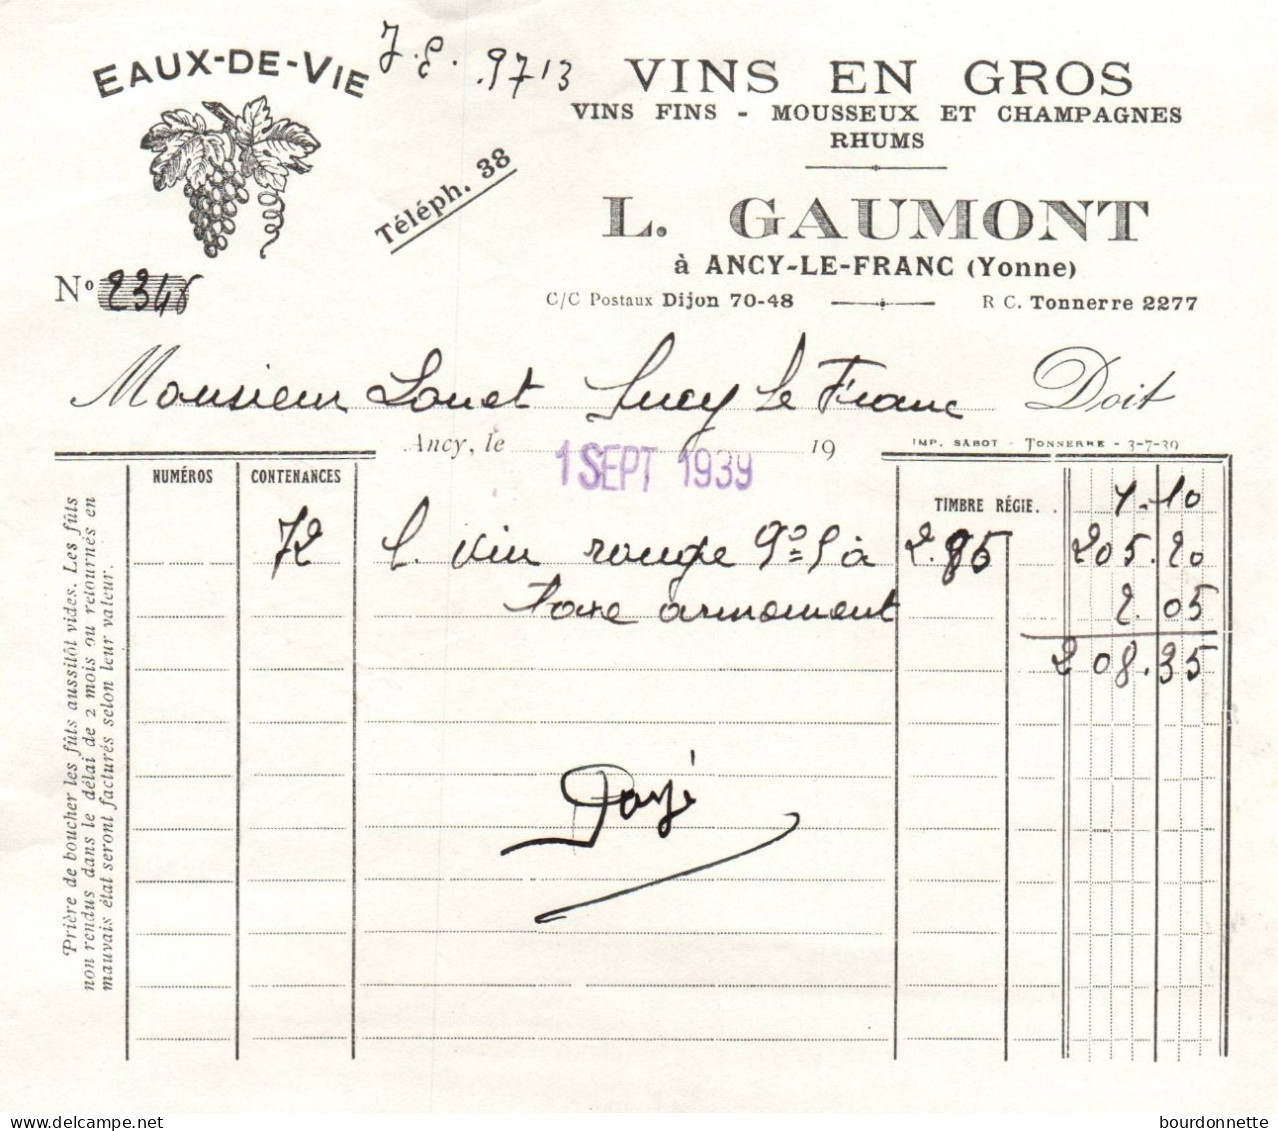 EAUX-DE-VIE
J.E. 9713
VINS EN GROS
VINS FINS - MOUSSEUX ET CHAMPAGNES
RHUMS
Téléph. 38
L. GAUMONT
à ANCY-LE-FRANC (Yonne)
No 2346
C/C Postaux Dijon 70-48 R C. Tonnerre 2277
Monsieur Louet Ancy le Franc Doit
Ancy, le 1 SEPT 1939 19
IMP. SABOT - TONNERRE - 3-7-39
NUMÉROS CONTENANCES
TIMBRE RÉGIE. . 1.10
72 l. vin rouge 9°=5 à 2.85 205.20
taxe armement 2.05
208.35
Payé
Prière de boucher les fûts aussitôt vides. Les fûts
non rendus dans le délai de 2 mois ou retournés en
mauvais état seront facturés selon leur valeur.
delcampe.net
bourdonnette